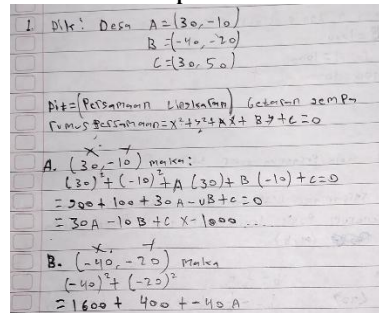 1. Dik: Desa A = (30, -10)
B = (-40, -20)
C = (30, 50)
Dit = (Persamaan Lingkaran) Getaran gempa
rumus Persamaan = x² + y² + Ax + By + C = 0
x. y
A. (30, -10) maka:
(30)² + (-10)² + A (30) + B (-10) + C = 0
= 900 + 100 + 30A - 10B + C = 0
= 30A - 10B + C x - 1000 ...
x, y
B. (-40, -20) Maka
(-40)² + (-20)²
= 1600 + 400 + -40A